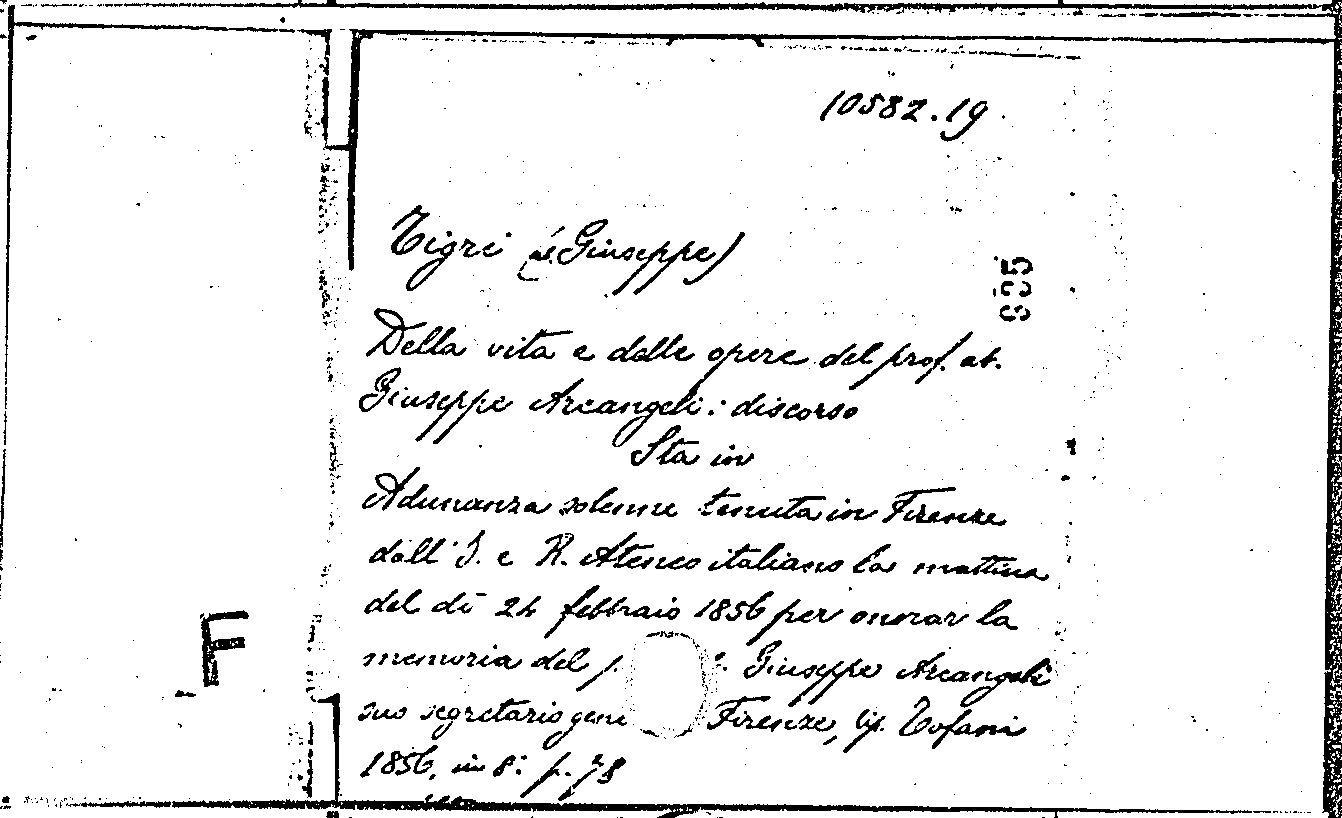 10582.19
Tigri (Giuseppe)
Della vita e delle opere del prof. ab.
Giuseppe Arcangeli: discorso
Sta in
Adunanza solenne tenuta in Firenze
dall' I. e R. Ateneo italiano la mattina
del dì 24 febbraio 1856 per onorar la
memoria del p. Giuseppe Arcangeli
suo segretario gene Firenze, tip. Tofani
1856, in 8: p. 78
F